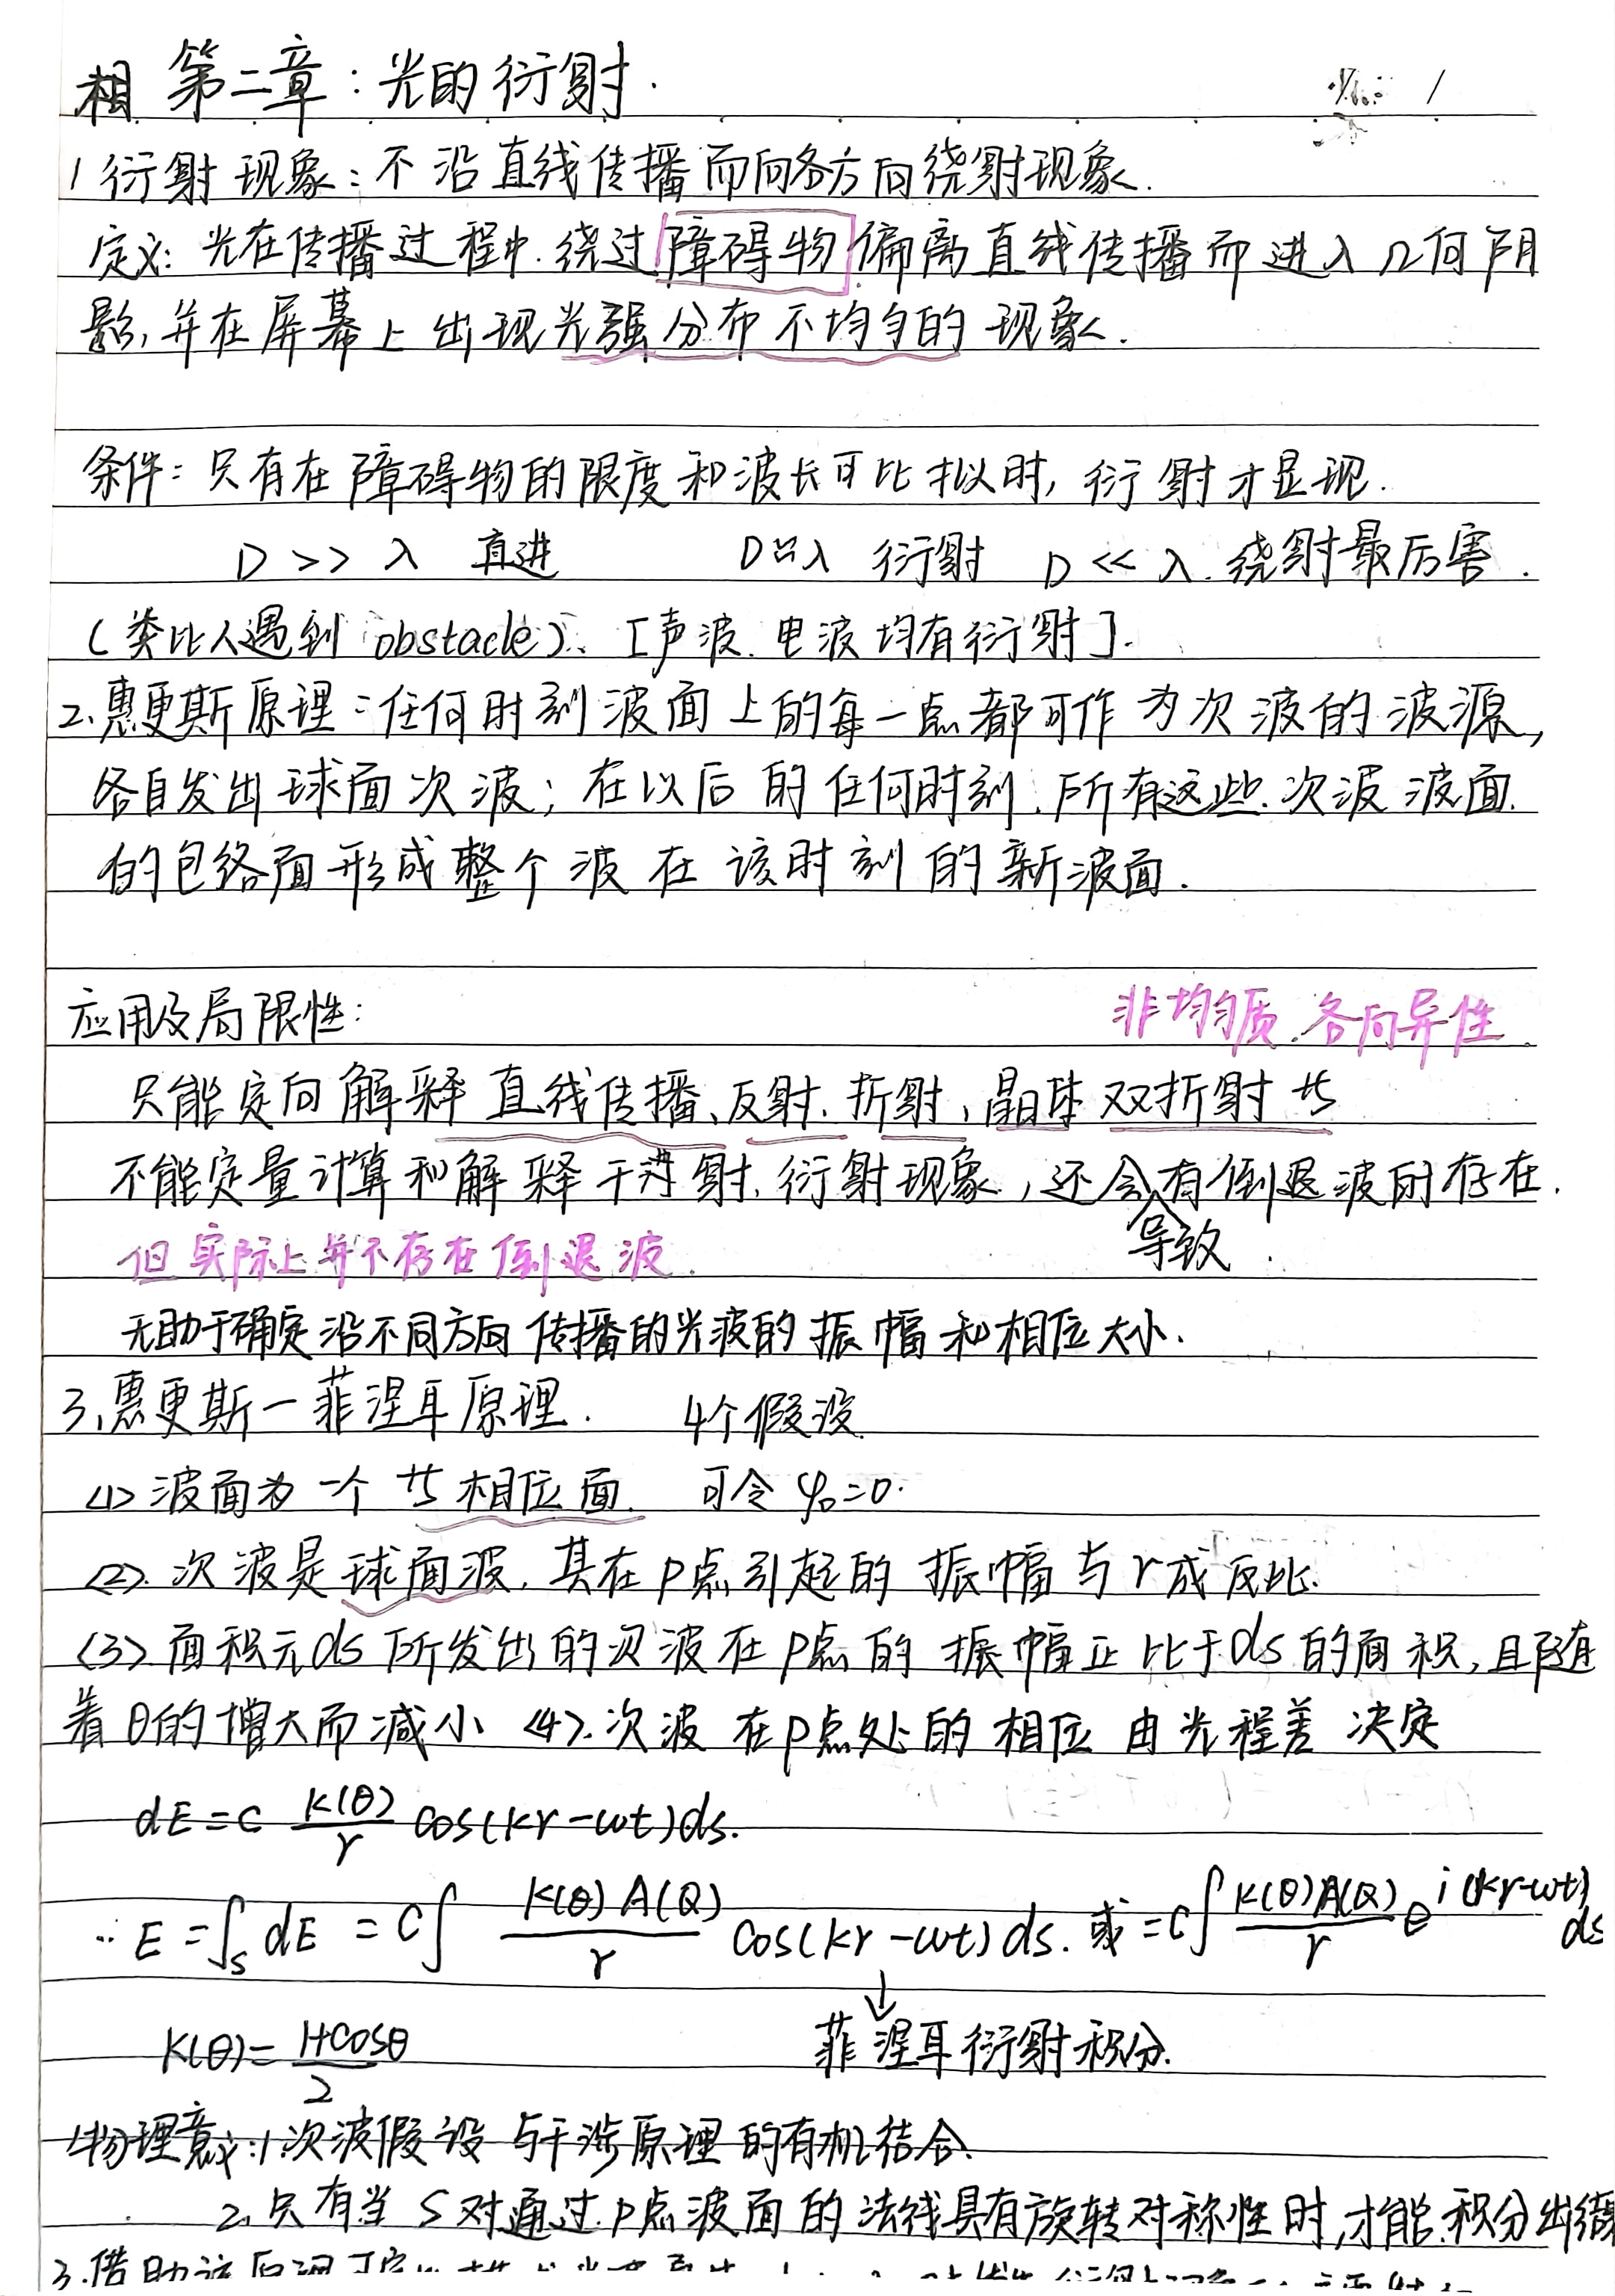 相 第二章：光的衍射.
1 衍射现象：不沿直线传播而向各方向绕射现象.
定义：光在传播过程中.绕过障碍物偏离直线传播而进入几何阴
影,并在屏幕上出现光强分布不均匀的现象.
条件：只有在障碍物的限度和波长可比拟时,衍射才显现.
D >> λ 直进 D≈λ 衍射 D << λ.绕射最厉害.
(类比人遇到 obstacle). [声波.电波均有衍射].
2.惠更斯原理：任何时刻波面上的每一点都可作为次波的波源,
各自发出球面次波；在以后的任何时刻.所有这些次波波面
的包络面形成整个波在该时刻的新波面.
应用及局限性： 非均匀质.各向异性.
只能定向解释直线传播、反射.折射、晶体双折射等
不能定量计算和解释干涉射.衍射现象,还会有倒退波的存在.
导致
但实际上并不存在倒退波.
无助于确定沿不同方向传播的光波的振幅和相位大小.
3.惠更斯一菲涅耳原理. 4个假设
<1>波面为一个等相位面. 可令φ₀=0.
<2>.次波是球面波,其在P点引起的振幅与r成反比.
<3>.面积元ds所发出的次波在P点的振幅正比于ds的面积,且随
着θ的增大而减小 <4>.次波在P点处的相位由光程差决定
dE = C K(θ)/r cos(kr-ωt)ds.
∴ E = ∫_S dE = C∫ K(θ)A(Q)/r cos(kr-ωt)ds. 或 = C∫ K(θ)A(Q)/r e^{i(kr-ωt)} ds
K(θ) = (1+cosθ)/2 ↓ 菲涅耳衍射积分.
物理意义：1.次波假设与干涉原理的有机结合.
2.只有当S对通过P点波面的法线具有旋转对称性时,才能积分出结
3.借助该原理可